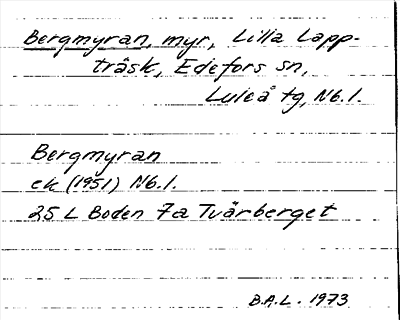 Bergmyran, myr, Lilla Lapp-
träsk, Edefors sn,
Luleå tg, Nb. l.
Bergmyran
ek (1951) Nb. l.
25 L Boden 7a Tvärberget
B.A.L. 1973